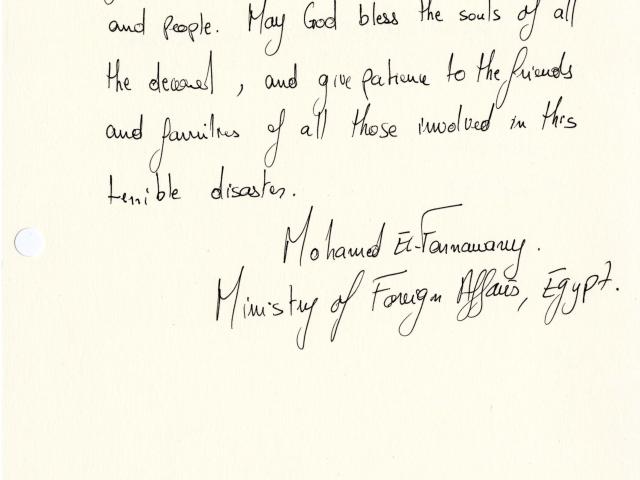 and people. May God bless the souls of all
the deceased, and give patience to the friends
and families of all those involved in this
terrible disaster.
Mohamed El-Farnawany.
Ministry of Foreign Affairs, Egypt.